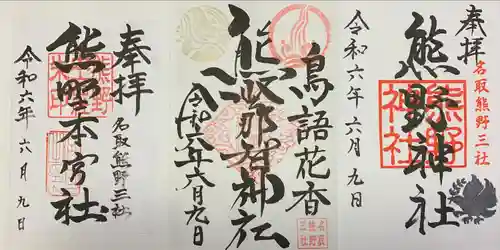 奉拝
名取熊野三社
熊野神社
熊野神社
令和六年六月九日
鳥語花香
熊野那智神社
令和六年六月九日
名取熊野三社
奉拝
名取熊野三社
熊野本宮社
令和六年六月九日